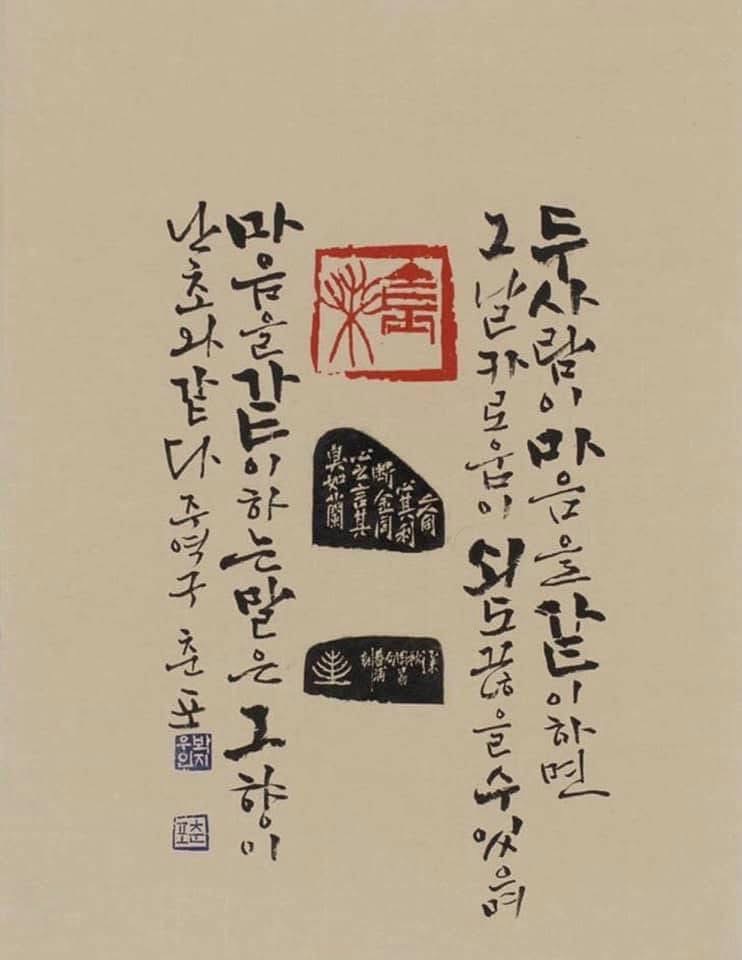 두사람이마음을같이하면
그날카로움이쇠도끊을수있으며
二人同
心其利
斷金同
心之言其
臭如蘭
마음을같이하는말은그향이
난초와같다 주역구 춘포
박지
우인
춘포